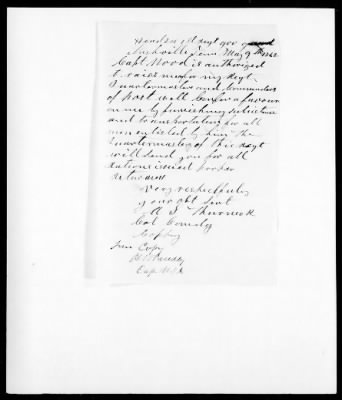 Head Qrs 1st Regt Gov Guard
Nashville Tenn May 9th 1862
Capt Wood is authorized
to raise men for my Regt
Quartermasters and Commanders
of Post will confer a favour
on me by furnishing subsistence
and transportation for all
men enlisted by him the
Quartermaster of this Regt
will send you for all
rations issued proper
returns
Very respectfully
your obt Servt
Col Comdg
Copy
True Copy
Capt